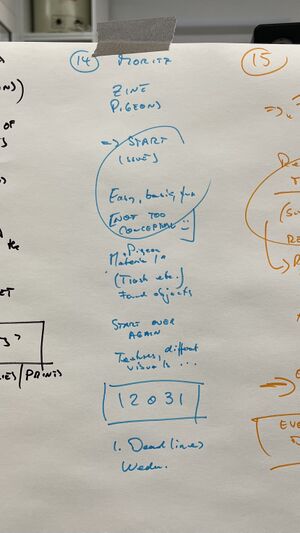 14 MORITZ
ZINE
PIGEONS
=> START
(ISSUES)
Easy, basic, fun
[NOT TOO
CONCEPTUAL :)]
Pigeon
Material
(Trash etc.)
Found objects
START OVER
AGAIN
Textures, different
visuals ...
12031
1. Deadlines
Wedn.
15
OF
the
PRINTS